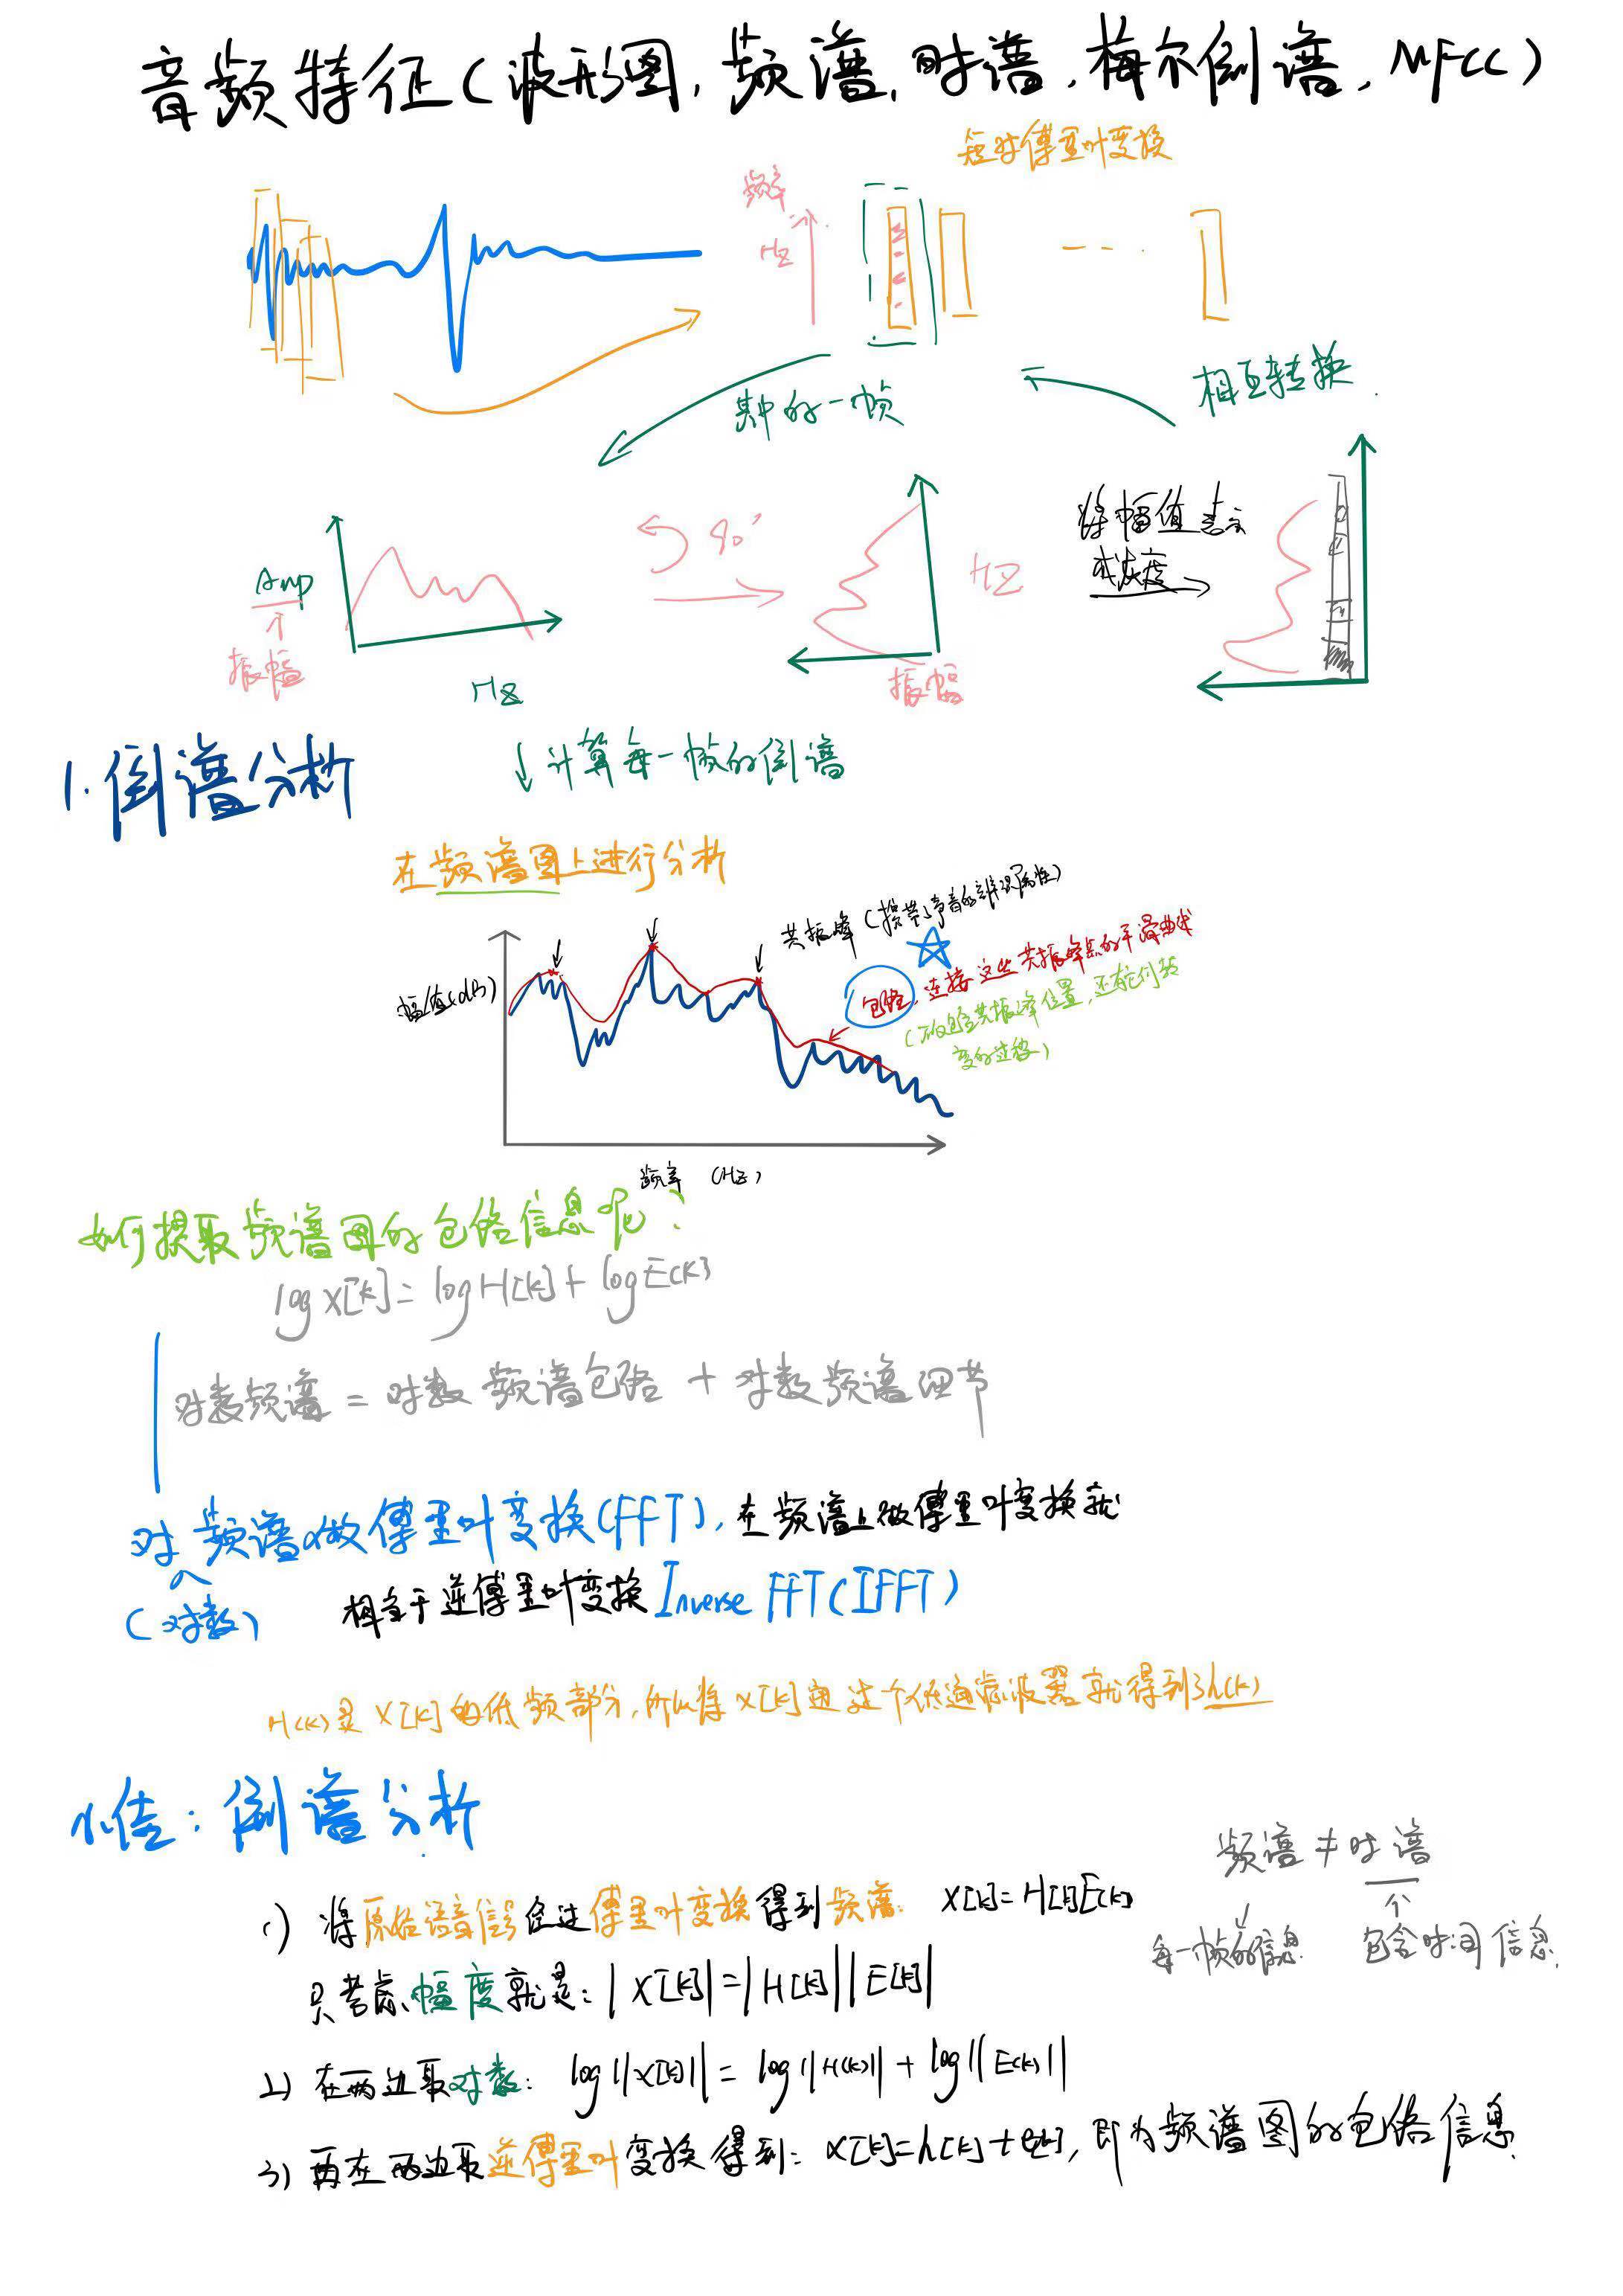 音频特征(波形图,频谱,时谱,梅尔倒谱,MFCC)
短时傅里叶变换
频率
Hz
相互转换
其中的一帧
将幅值表示
成灰度
90°
Amp
振幅
Hz
Hz
振幅
1.倒谱分析
↓计算每一帧的倒谱
在频谱图上进行分析
共振峰(携带了声音的辨识属性)
幅值(dB)
包络,连接这些共振峰点的平滑曲线
(不仅包含共振峰位置,还有它们转
变的过程)
频率 (Hz)
如何提取频谱图的包络信息呢?
log X[k] = log H[k] + log E[k]
对数频谱 = 对数频谱包络 + 对数频谱细节
对频谱做傅里叶变换(FFT),在频谱上做傅里叶变换就
(对数) 相当于逆傅里叶变换Inverse FFT(IFFT)
H(k)是X[k]的低频部分,所以将X[k]通过个低通滤波器就得到了h(k)
小结:倒谱分析
频谱≠时谱
每一帧的信息 包含时间信息
1) 将原始语音信号经过傅里叶变换得到频谱: X[k]=H[k]E[k]
只考虑幅度就是:|X[k]|=|H[k]||E[k]|
2) 在两边取对数: log||X[k]|| = log||H(k)|| + log||E(k)||
3) 再在两边取逆傅里叶变换得到: x[k]=h[k]+e[k],即为频谱图的包络信息.